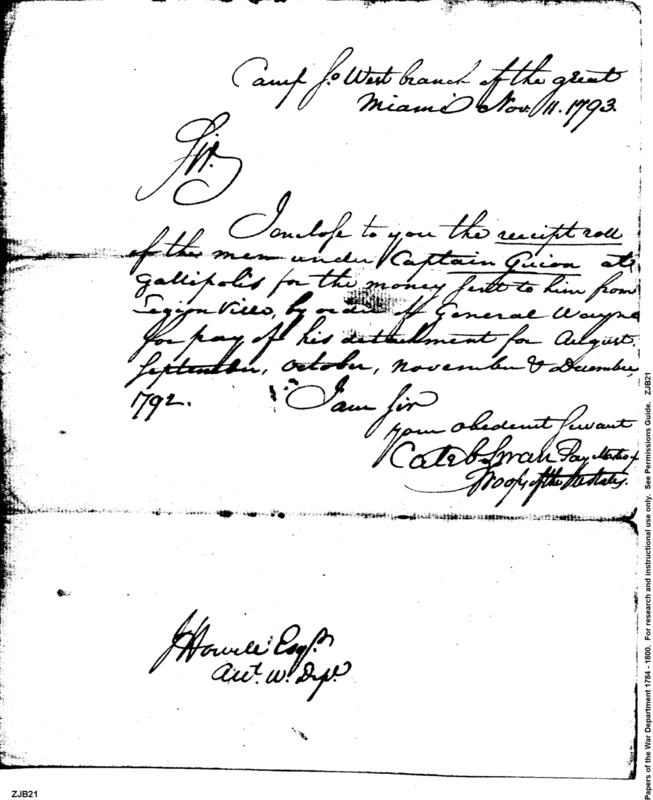 Camp So West branch of the great
Miami Nov. 11. 1793.
Sir.
I enclose to you the receipt roll
of the men under Captain Guion at
Gallipolis for the money sent to him from
Legion Ville, by order of General Wayne
for pay of his detachment for August,
September, October, november & December,
1792.
I am Sir
your obedient Servant
Caleb Swan Pay Master
Troops of the U States.
J Howell Esqr.
Act. W. Dept.
ZJB21
Papers of the War Department 1784 - 1800. For research and instructional use only. See Permissions Guide. ZJB21